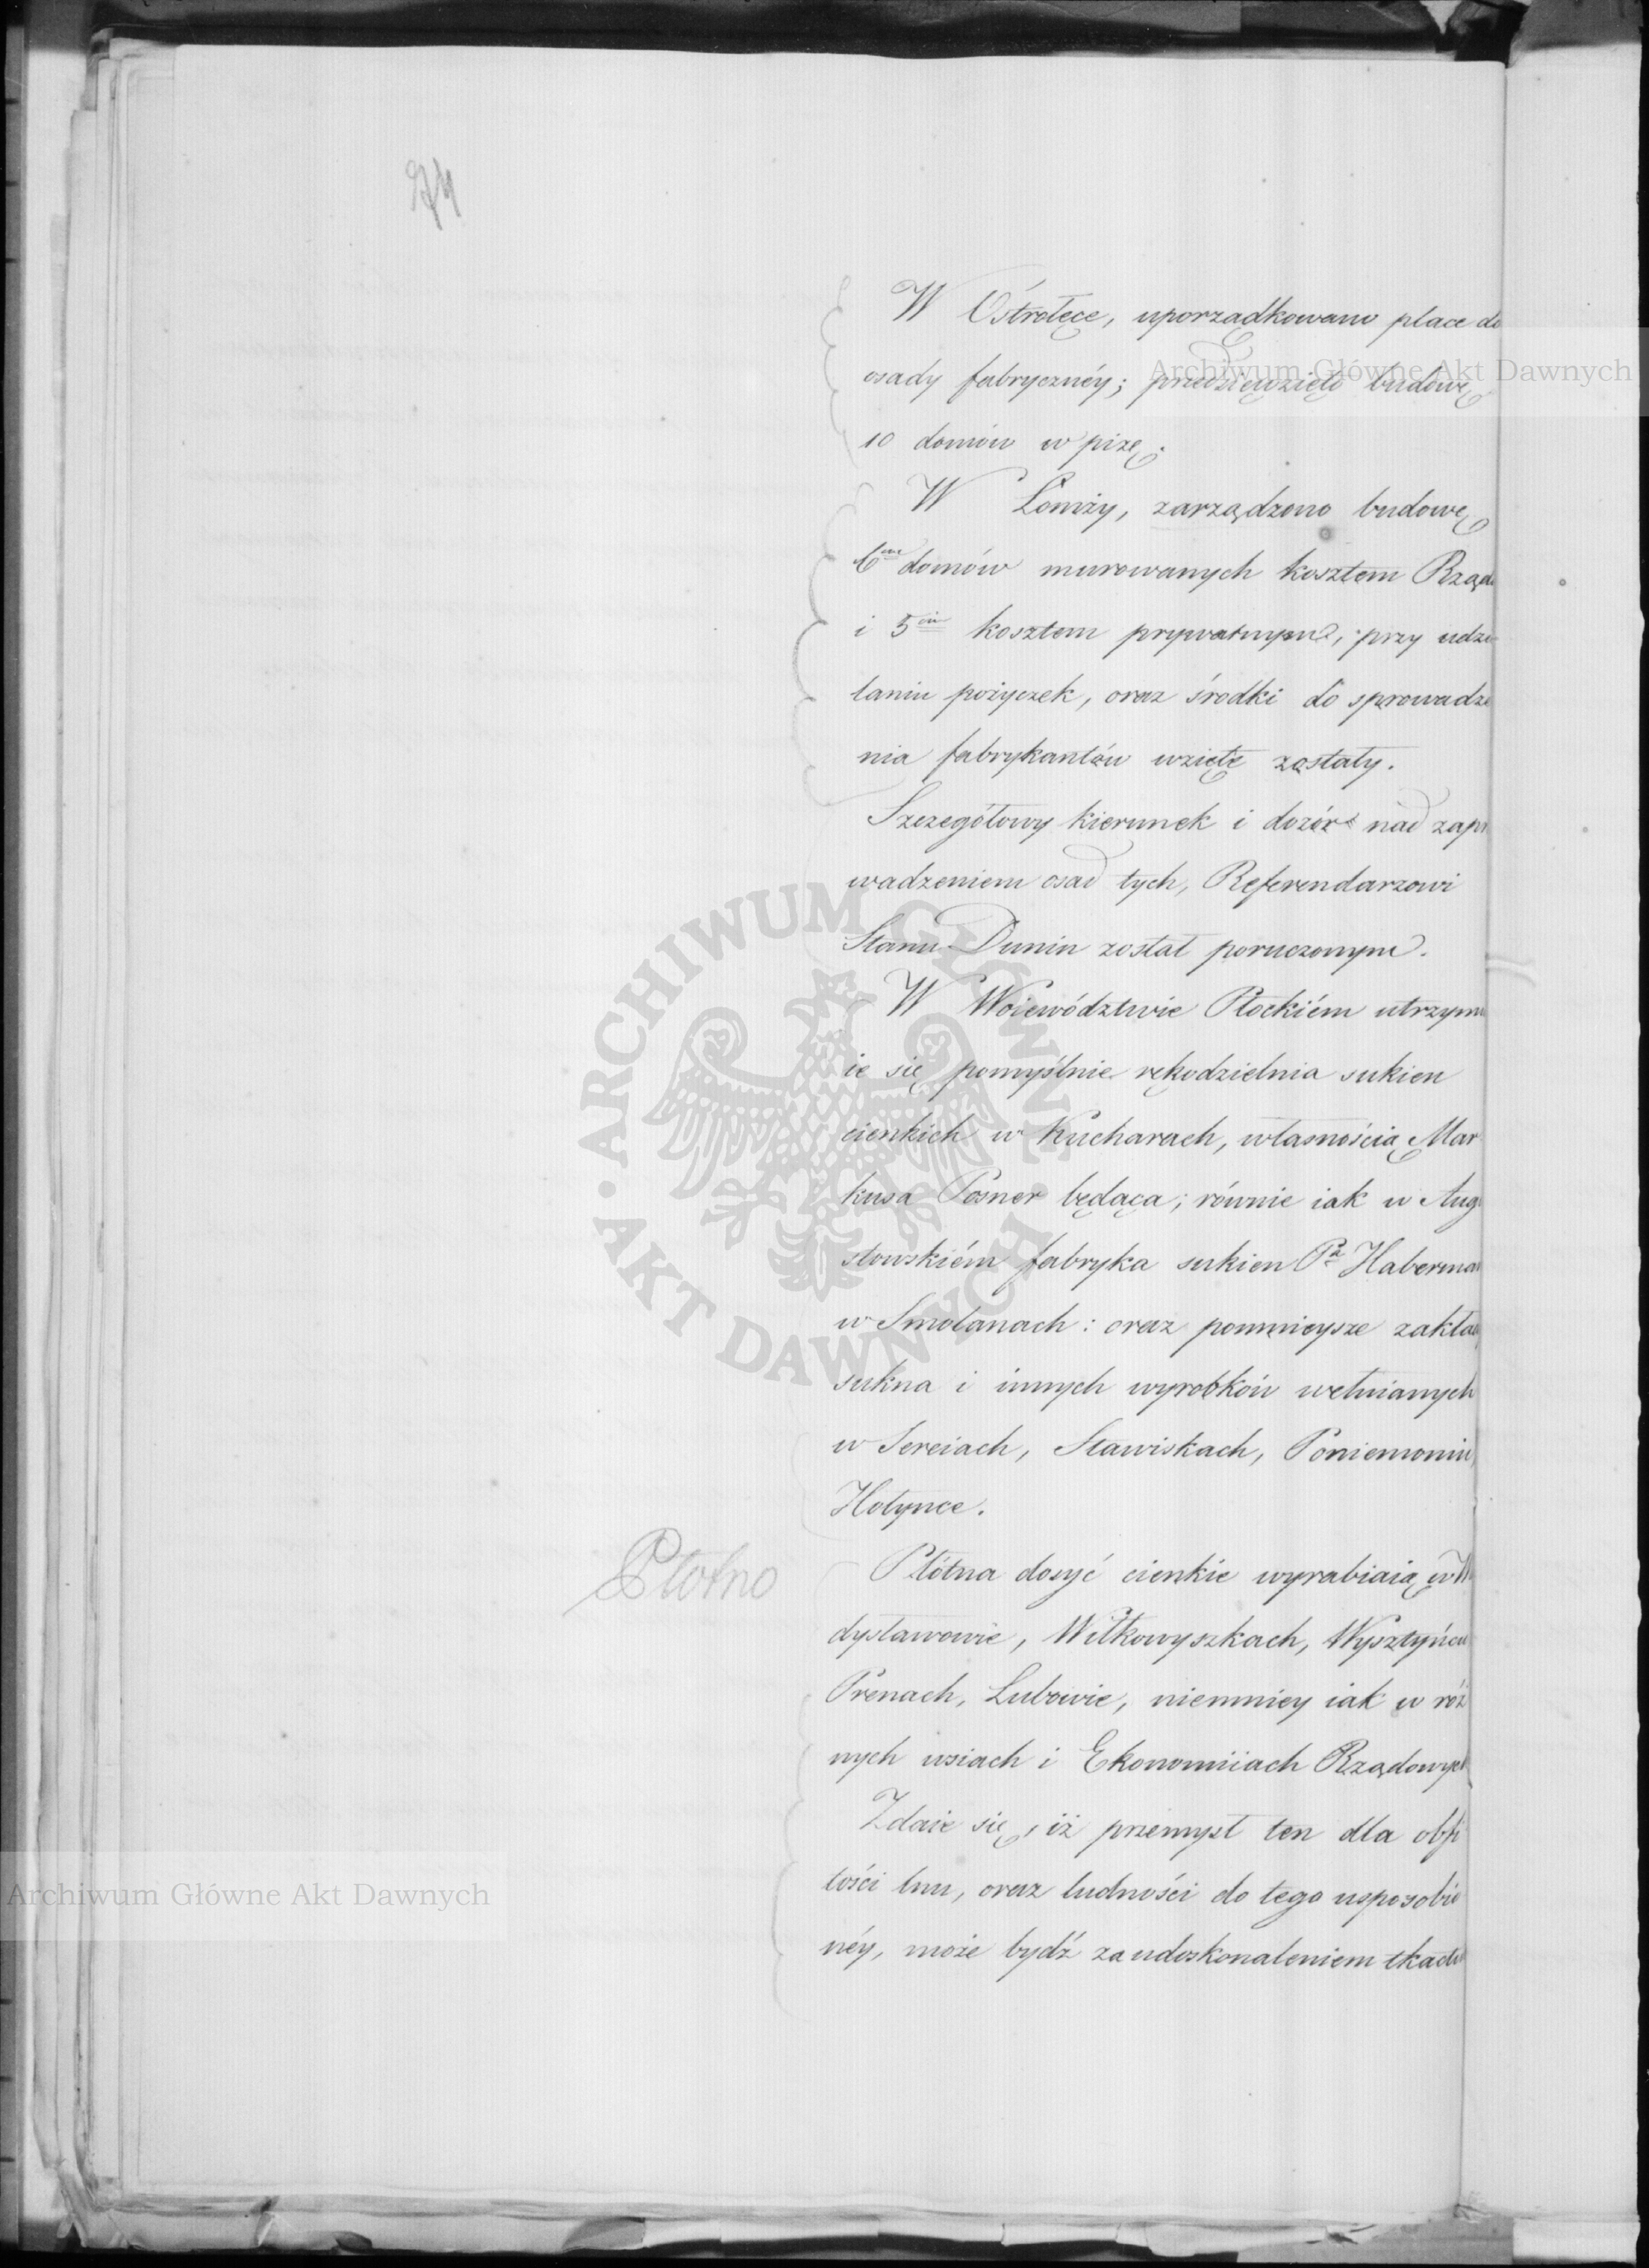 74
W Ostrołęce, uporządkowano place do
osady fabrycznéy; przedzięwzięto budowę
10 domów w pizę.
W Łomży, zarządzono budowę
domów murowanych kosztem Rządu
i 5ciu kosztem prywatnym, przy udzie
laniu pożyczek, oraz środki do sprowadze
nia fabrykantów wzięte zostały.
Szczegółowy kierunek i dozór nad zapro
wadzeniem osad tych, Referendarzowi
Stanu Dunin został poruczonym.
W Woiewództwie Płockiém utrzymu
ie się pomyślnie rękodzielnia sukien
cienkich w Kucharach, własnością Mar
kusa Posner będąca; równie iak w Augu
stowskiém fabryka sukien Pa Haberman
w Smolanach: oraz pomnieysze zakłady
sukna i innych wyrobków wełnianych
w Sereiach, Stawiskach, Poniemoniu,
Hołynce.
Płotno
Płótna dosyć cienkie wyrabiaią w Wła
dysławowie, Wiłkowyszkach, Wysztyńcu
Prenach, Lubowie, niemniey iak w róż
nych wsiach i Ekonomiiach Rządowych
Zdaie się, iż przemysł ten dla obfi
tości lnu, oraz ludności do tego usposobio
néy, może bydź za udoskonaleniem tkact
Archiwum Główne Akt Dawnych
Archiwum Główne Akt Dawnych
ARCHIWUM GŁÓWNE • AKT DAWNYCH •